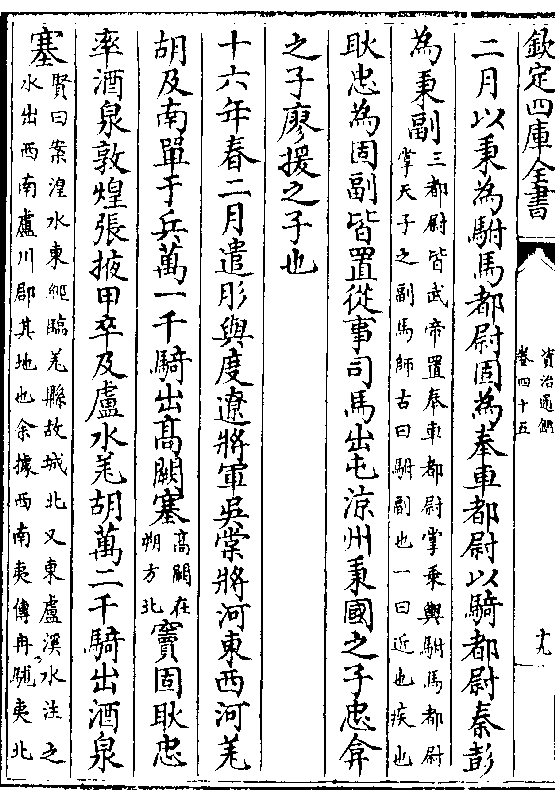 欽定四庫全書
資治通鑑
卷四十五
十九
二月以秉為駙馬都尉固為奉車都尉以騎都尉秦彭
為秉副三都尉皆武帝置奉車都尉掌乗輿駙馬都尉
掌天子之副馬師古曰駙副也一曰近也疾也
耿忠為固副皆置從事司馬出屯涼州秉國之子忠弇
之子廖援之子也
十六年春二月遣肜與度遼將軍吳棠將河東西河羌
胡及南單于兵萬一千騎出髙闕塞髙闕在
朔方北
竇固耿忠
率酒泉敦煌張掖甲卒及盧水羌胡萬二千騎出酒泉
塞賢曰案湟水東經臨羌縣故城北又東盧溪水注之
水出西南盧川郡其地也余據西南夷傳冉駹夷北